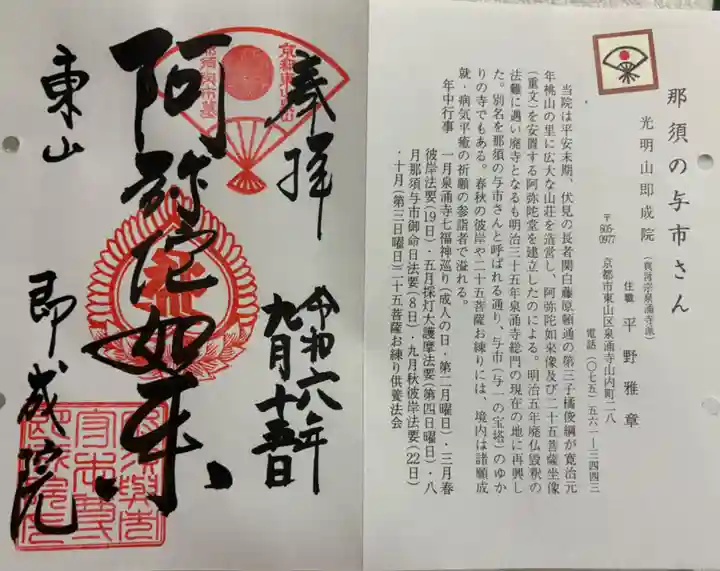 奉拝
阿弥陀如来
東山
即成院
令和六年
九月十五日
那須の与市さん
光明山即成院(真言宗泉涌寺派)
住職 平野雅章
〒605-0977 京都市東山区泉涌寺山内町二八
電話(〇七五)五六一―三四四三
当院は平安末期、伏見の長者関白藤原頼通の第三子橘俊綱が寛治元
年桃山の里に広大な山荘を造営し、阿弥陀如来像及び二十五菩薩坐像
(重文)を安置する阿弥陀堂を建立したのによる。明治五年廃仏毀釈の
法難に遇い廃寺となるも明治三十五年泉涌寺総門の現在の地に再興し
た。別名を那須の与市さんと呼ばれる通り、与市(与一の宝塔)のゆか
りの寺でもある。春秋の彼岸や二十五菩薩お練りには、境内は諸願成
就・病気平癒の祈願の参詣者で溢れる。
年中行事 一月泉涌寺七福神巡り(成人の日・第二月曜日)・三月春
彼岸法要(19日)・五月採灯大護摩法要(第四日曜日)・八
月那須与市御命日法要(8日)・九月秋彼岸法要(22日)
・十月(第三日曜日)二十五菩薩お練り供養法会